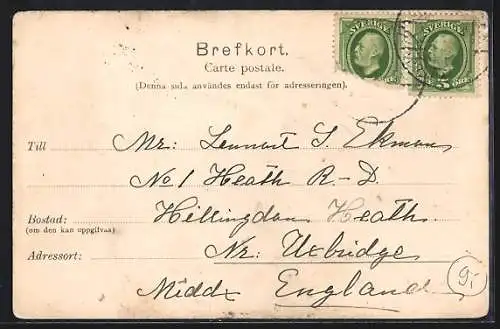 Brefkort.
Carte postale.
(Denna sida användes endast för adresseringen).
SVERIGE
SVERIGE
ÖRE
5 ÖRE
Till Mr: Lennart S. Ekman
No 1 Heath R-D.
Bostad: Hillingdon Heath.
(om den kan uppgifvas)
Adressort: Nr: Uxbridge
Middx England
9:-